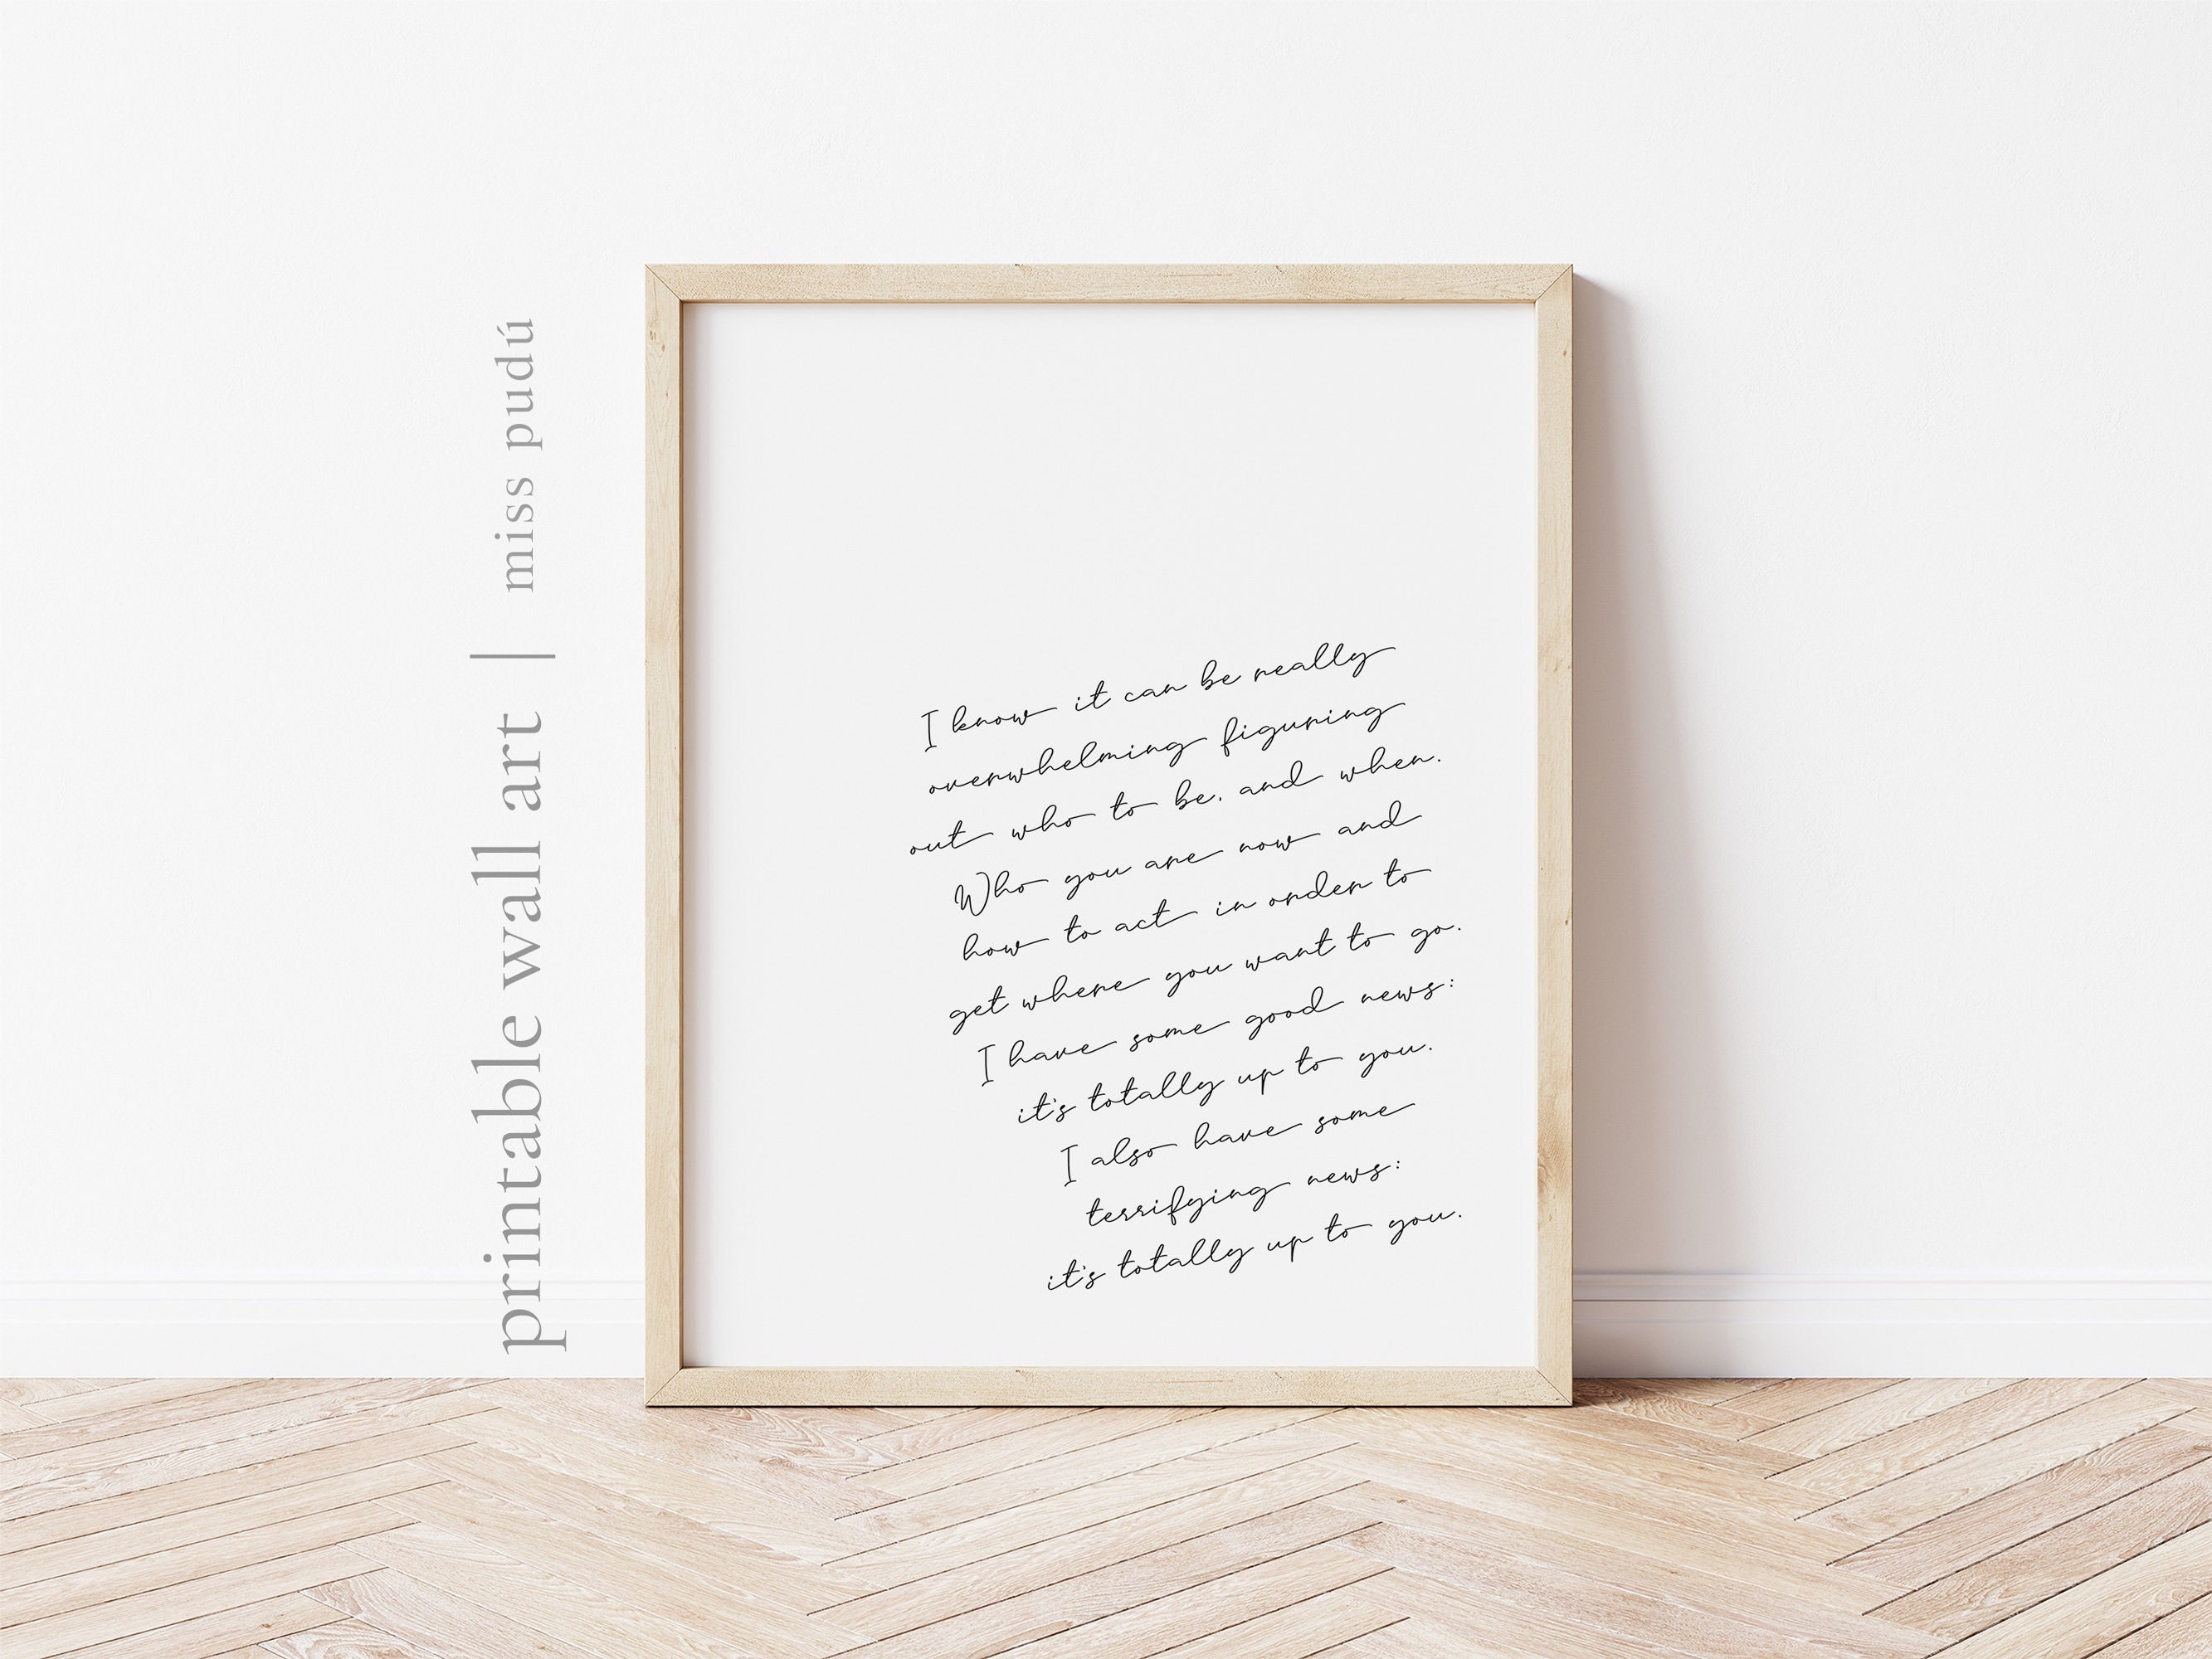 printable wall art | miss pudú
I know it can be really
overwhelming figuring
out who to be, and when.
Who you are now and
how to act in order to
get where you want to go.
I have some good news:
it's totally up to you.
I also have some
terrifying news:
it's totally up to you.